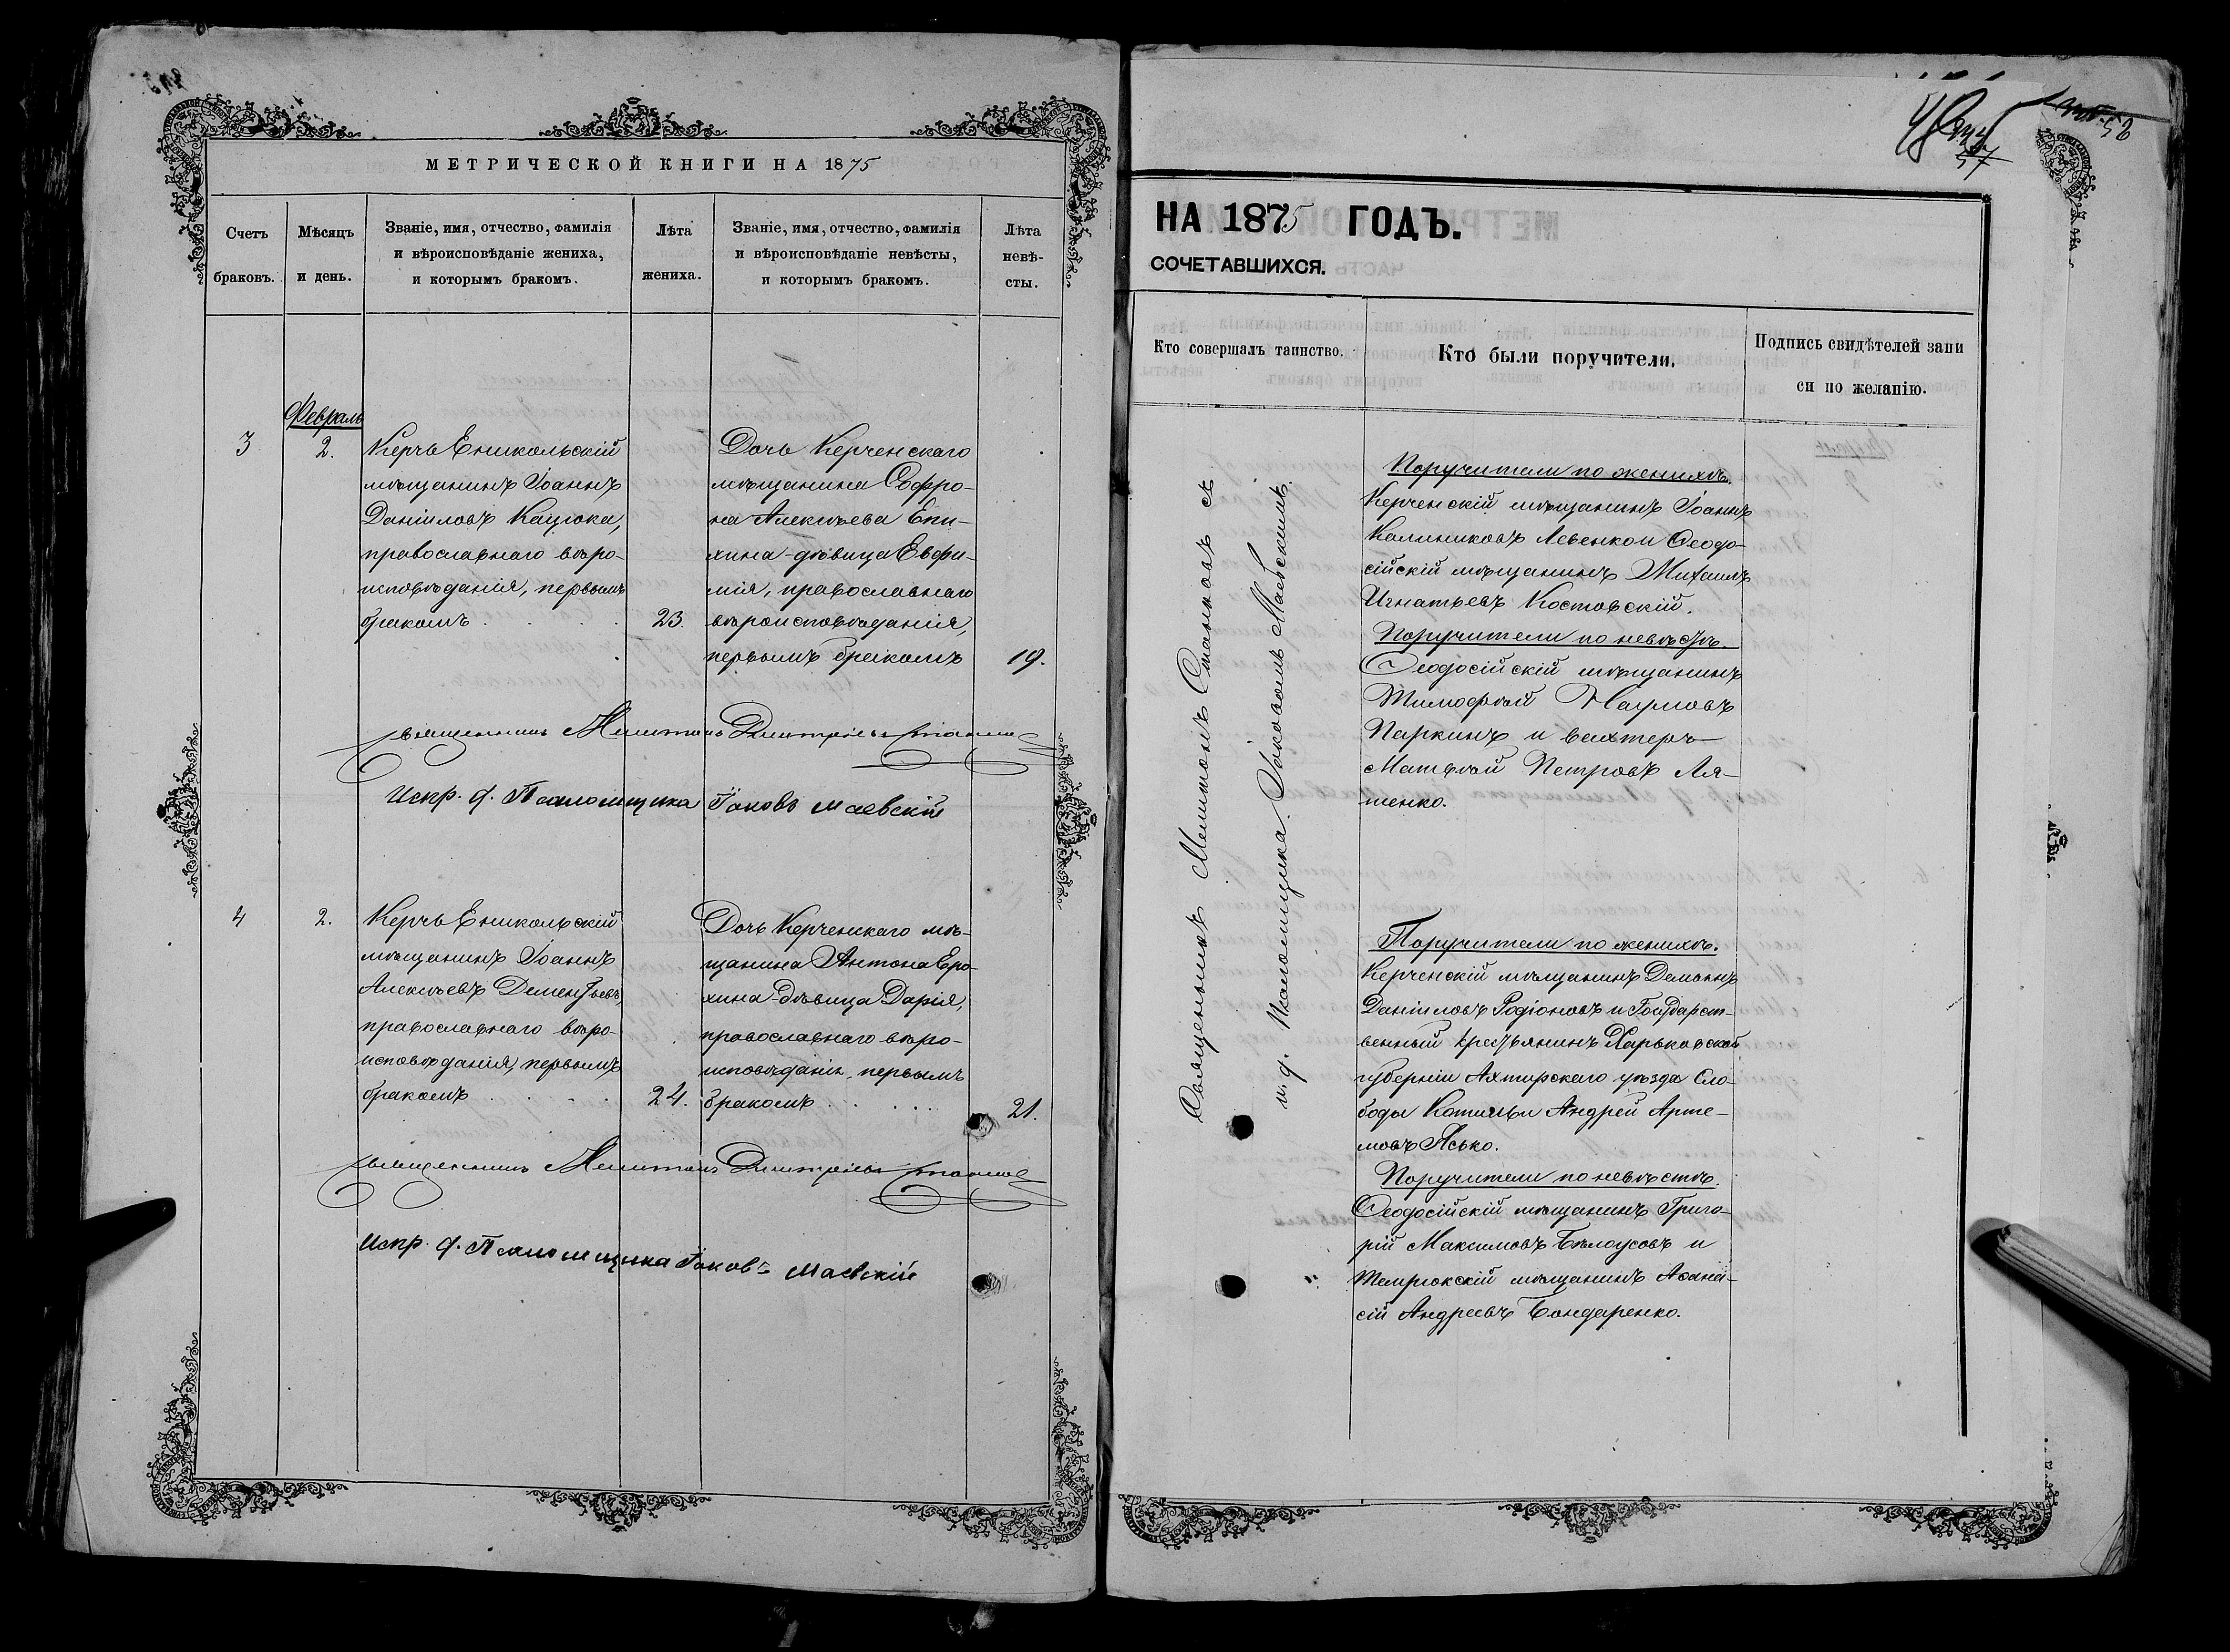 МЕТРИЧЕСКОЙ КНИГИ НА 1875
Счетъ
браковъ.
Мѣсяцъ
и день.
Званіе, имя, отчество, фамилія
и вѣроисповѣданіе жениха,
и которымъ бракомъ.
Лѣта
жениха.
Званіе, имя, отчество, фамилія
и вѣроисповѣданіе невѣсты,
и которымъ бракомъ.
Лѣта
невѣ-
сты.
Февраль
3
2.
Керчь Еникольскій
мѣщанинъ Іоаннъ
Даніиловъ Кацюка,
православнаго вѣро-
исповѣданія, первымъ
бракомъ
23.
Дочь Керченскаго
мѣщанина Софро-
на Алексѣева Епи-
хина - дѣвица Евфи-
мія, православнаго
вѣроисповѣданія,
первымъ бракомъ
19.
Священникъ Мелитонъ Дмитріевъ Станковъ
Испр. д. Псаломщика Іаковъ Маевскій
4
2.
Керчь Еникольскій
мѣщанинъ Іоаннъ
Алексѣевъ Дементьевъ,
православнаго вѣро-
исповѣданія, первымъ
бракомъ
24.
Дочь Керченскаго мѣ-
щанина Антона Еро-
хина - дѣвица Дарія,
православнаго вѣро-
исповѣданія, первымъ
бракомъ
21.
Священникъ Мелитонъ Дмитріевъ Станковъ
Испр. д. Псаломщика Іаковъ Маевскій
НА 1875 ГОДЪ.
СОЧЕТАВШИХСЯ.
Кто совершалъ таинство.
Кто были поручители.
Подпись свидѣтелей запи
си по желанію.
Священникъ Мелитонъ Станковъ съ
и. д. псаломщика Іаковомъ Маевскимъ.
Поручители по женихѣ.
Керченскій мѣщанинъ Іоаннъ
Калиниковъ Левенко и Ѳеодо-
сійскій мѣщанинъ Михаилъ
Игнатьевъ Костовскій.
Поручители по невѣстѣ.
Ѳеодосійскій мѣщанинъ
Тимофѣй Наумовъ
Паркинъ и вахтеръ
Матвѣй Петровъ Ля-
шенко.
Поручители по женихѣ.
Керченскій мѣщанинъ Демьянъ
Даніиловъ Родіоновъ и Государст-
венный крестьянинъ Харьковской
губерніи Ахтырскаго уѣзда Сло-
боды Котельвы Андрей Арте-
мовъ Ясько.
Поручители по невѣстѣ.
Ѳеодосійскій мѣщанинъ Григо-
рій Максимовъ Бѣлоусовъ и
Темрюкскій мѣщанинъ Аѳана-
сій Андреевъ Бондаренко.